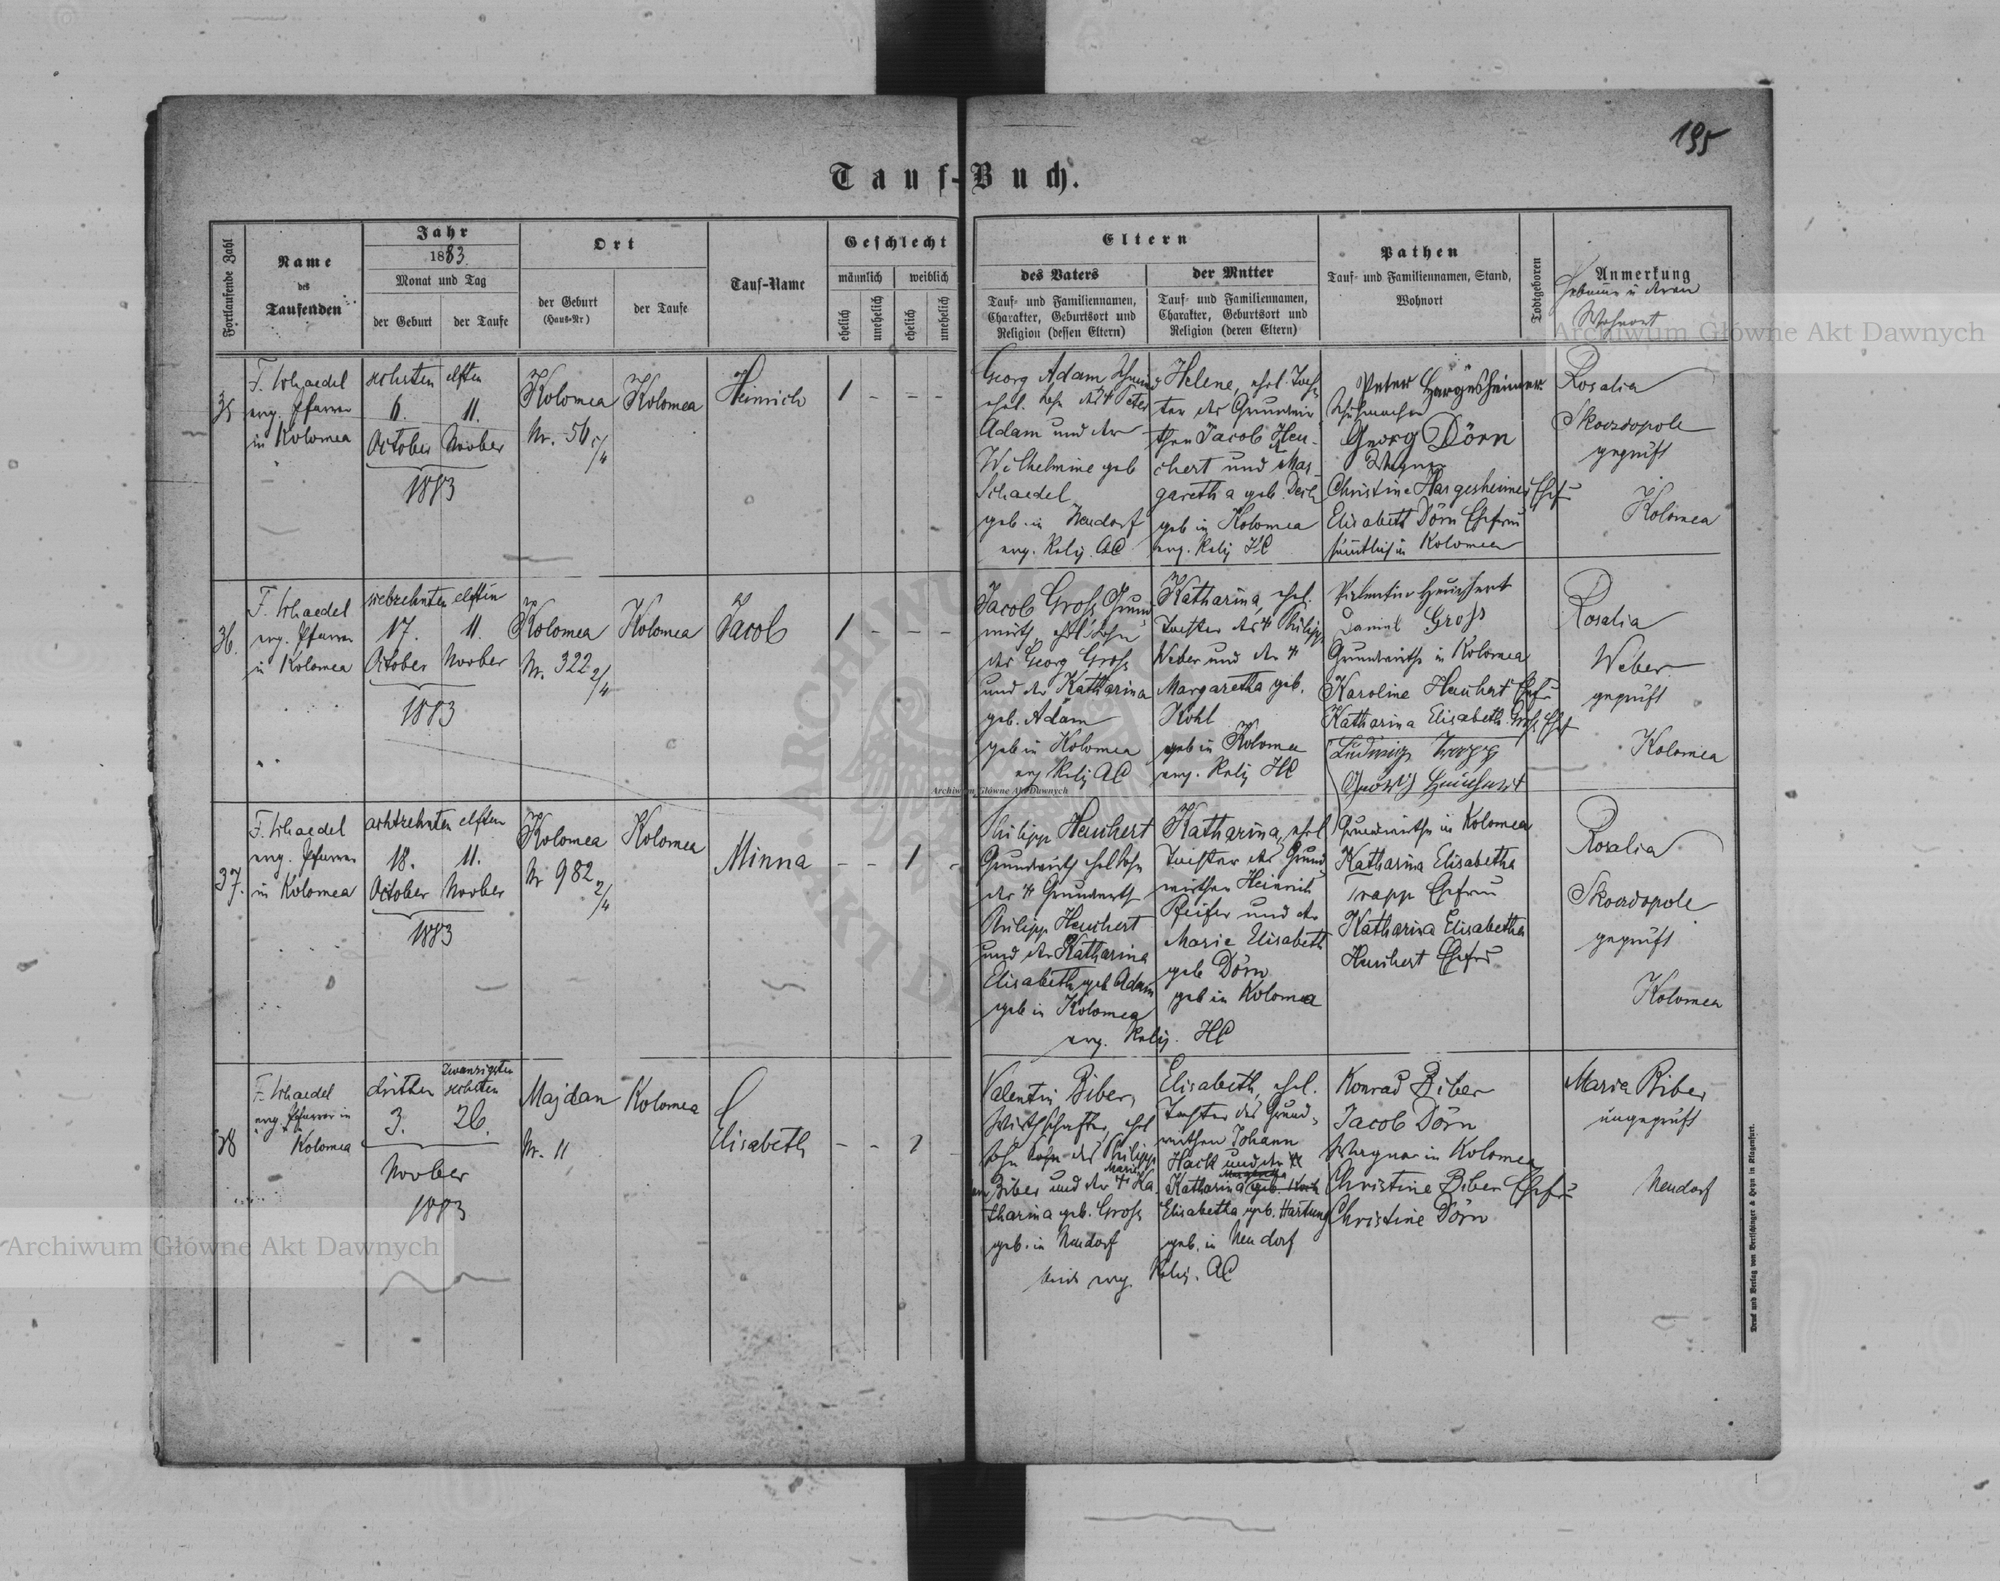 195
Tauf-Buch.
Fortlaufende Zahl
Name
des
Taufenden
Jahr
1883
Monat und Tag
der Geburt
der Taufe
Ort
der Geburt
(Haus-Nr)
der Taufe
Tauf-Name
Geschlecht
männlich
weiblich
ehelich
unehelich
ehelich
unehelich
Eltern
des Vaters
Tauf- und Familiennamen,
Charakter, Geburtsort und
Religion (dessen Eltern)
der Mutter
Tauf- und Familiennamen,
Charakter, Geburtsort und
Religion (deren Eltern)
Pathen
Tauf- und Familiennamen, Stand,
Wohnort
Todtgeboren
Anmerkung
Hebamme u deren
Wohnort
Archiwum Główne Akt Dawnych
35
F. Schaedel
evg. Pfarrer
in Kolomea
sechsten
6.
October
elften
11.
Novber
1883
Kolomea
Nr. 56 5/4
Kolomea
Heinrich
1 - - -
Georg Adam
ehel. Sohn des
Adam und der
Wilhelmine geb
Schaedel
geb. in Neudorf
evg. Relig AC
Helene, ehel. Toch
ter des Grundwir
then Jacob Heu-
chert und Mar-
garetha geb.
geb in Kolomea
evg. Relig HC
Peter Hargesheimer
Schuhmacher
Georg Dörn
Wagner
Christine Hargesheimer Ehefr
Elisabeth Dörn Ehefrau
sämtlich in Kolomea
Rosalia
Skoczdopole
geprüft
Kolomea
36.
F. Schaedel
evg. Pfarrer
in Kolomea
siebzehnten
17.
October
elften
11.
Novber
1883
Kolomea
Nr. 322 2/4
Kolomea
Jacob
1 - - -
Jacob Gross Grund
wirth, ehel Sohn
des Georg Gross
und der Katharina
geb. Adam
geb in Kolomea
evg Relig AC
Katharina, ehel.
Tochter des + Philipp
Weber und der +
Margaretha geb.
Kohl
geb in Kolomea
evg. Relig HC
Heuchert
Daniel Gross
Grundwirthe in Kolomea
Karoline Heuchert Ehefr
Katharina Elisabeth Gross Ehef
Rosalia
Weber
geprüft
Kolomea
Archiwum Główne Akt Dawnych
37.
F. Schaedel
evg. Pfarrer
in Kolomea
achtzehnten
18.
October
elften
11.
Novber
1883
Kolomea
Nr 982 2/4
Kolomea
Minna
- - 1 -
Philipp Heuchert
Grundwirth ehel Sohn
des + Grundwirth
Philipp Heuchert
und der Katharina
Elisabeth geb Adam
geb in Kolomea
evg. Relig. HC
Katharina, ehel
Tochter des Grund
wirthen Heinrich
Reifer und der
Marie Elisabeth
geb Dörn
geb in Kolomea
Ludwig Trapp
Heuchert
Grundwirthe in Kolomea
Katharina Elisabetha
Trapp Ehefrau
Katharina Elisabetha
Heuchert Ehefr
Rosalia
Skoczdopole
geprüft
Kolomea
38
F. Schaedel
evg. Pfarrer in
Kolomea
dritten
3.
zwanzigsten
sechsten
26.
Novber
1883
Majdan
Nr. 11
Kolomea
Elisabeth
- - 1 -
Valentin Biber,
Wirthschafter, ehel
Sohn des Philipp
Biber und der + Maria Ka
tharina geb. Gross
geb. in Neudorf
beide evg. Relig. AC
Elisabeth, ehel.
Tochter des Grund-
wirthen Johann
Hack und der +
Katharina geb. Koch
Elisabetha geb. Hartung
geb. in Neudorf
Konrad Biber
Jacob Dörn
Wagner in Kolomea
Christine Biber Ehefr
Christine Dörn
Maria Biber
ungeprüft
Neudorf
Archiwum Główne Akt Dawnych
Druck und Verlag von Bertschinger & Heyn in Klagenfurt.